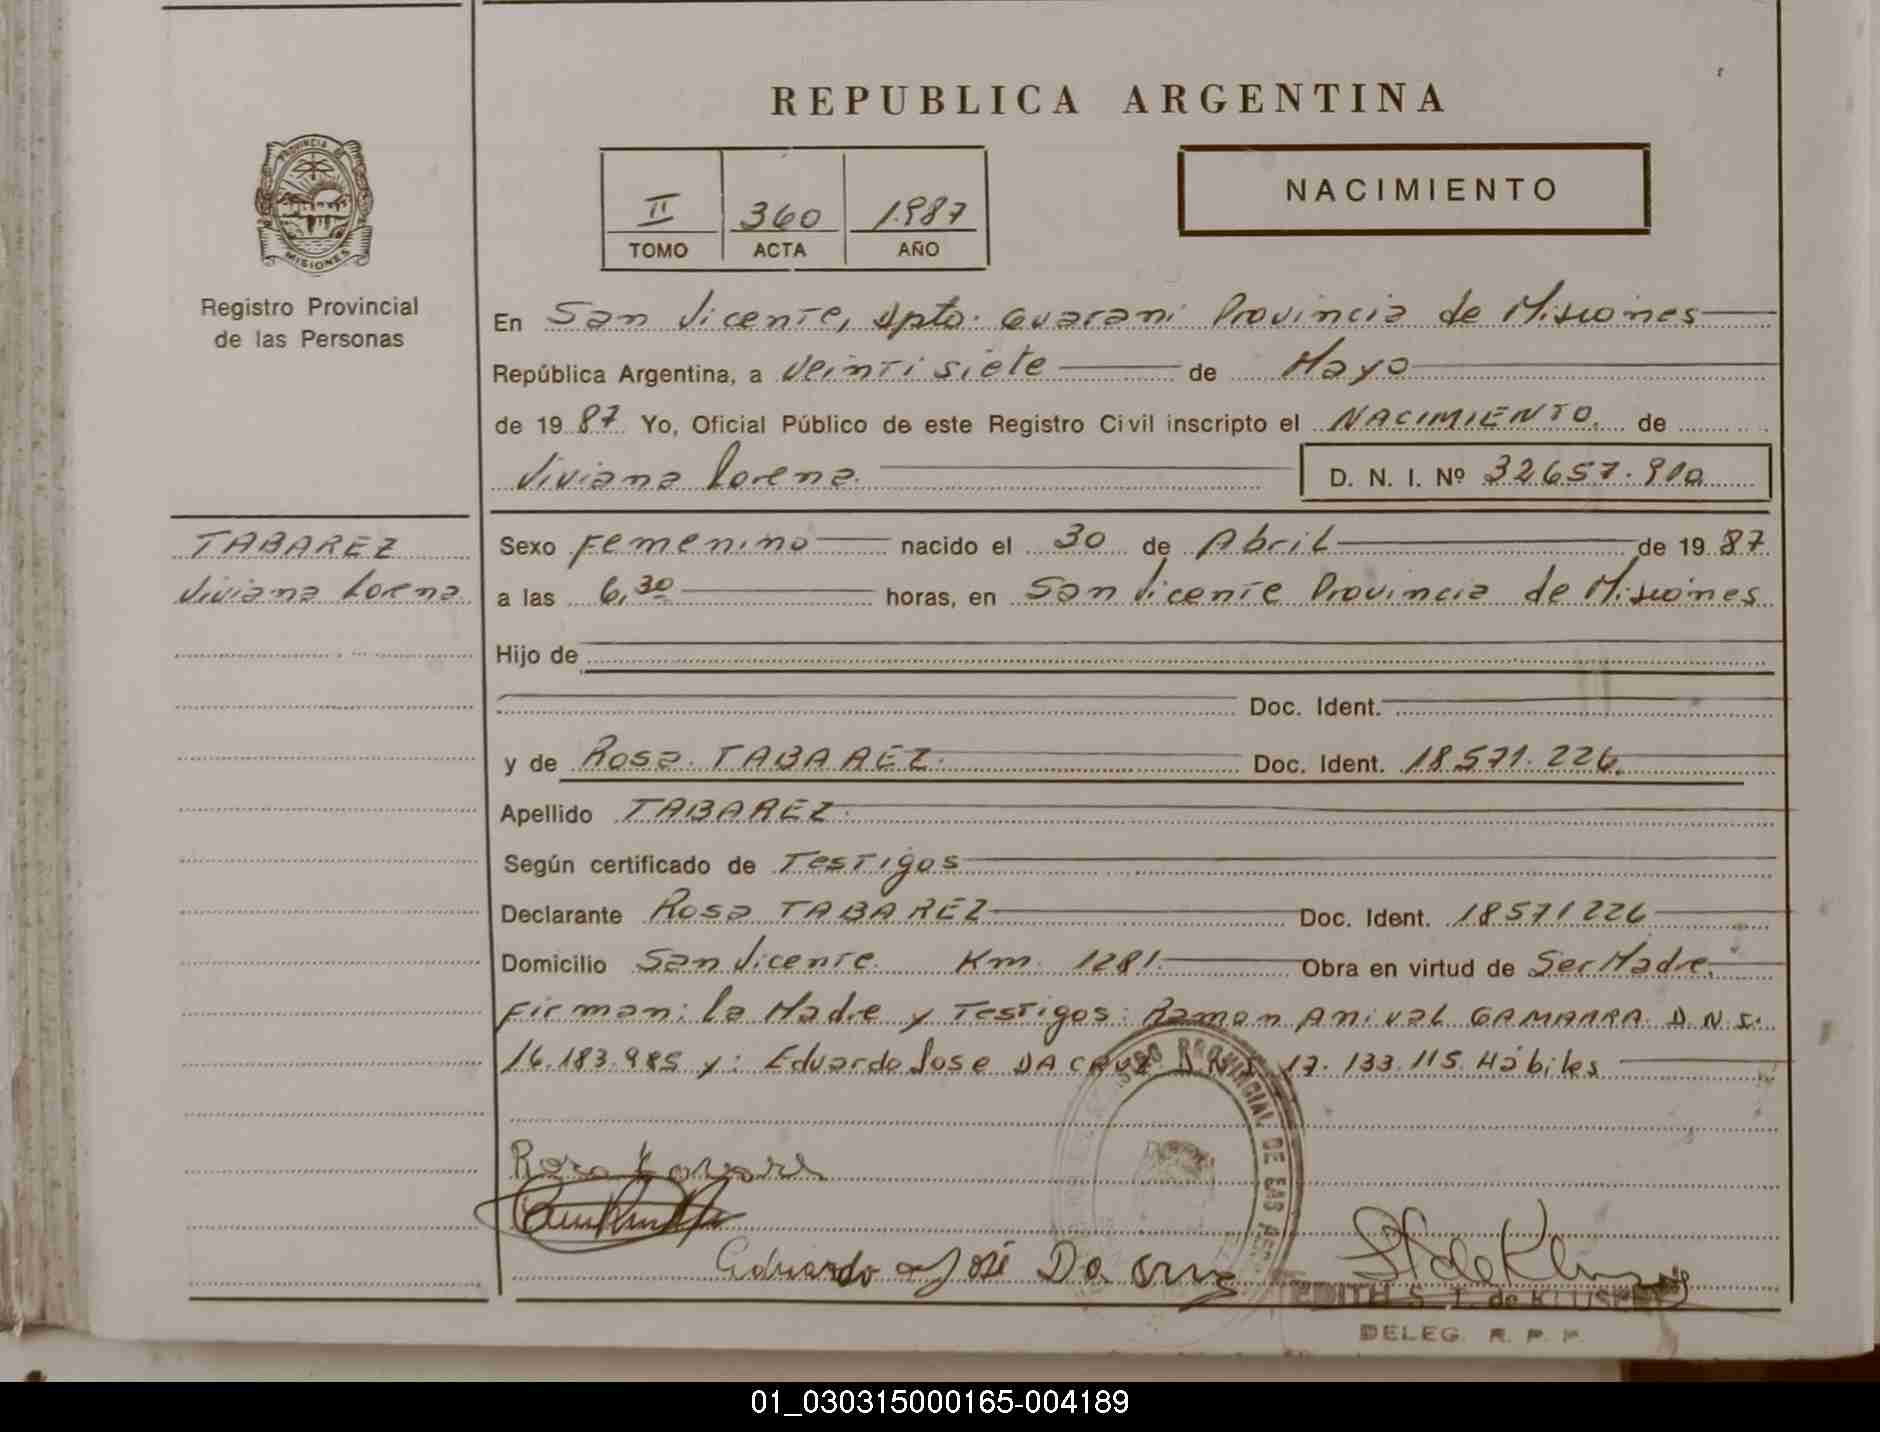 REPUBLICA ARGENTINA
PROVINCIA DE
MISIONES
Registro Provincial
de las Personas
II 360 1987
TOMO ACTA AÑO
NACIMIENTO
En San Vicente, Dpto. Guarani Provincia de Misiones
República Argentina, a veintisiete de Mayo
de 1987 Yo, Oficial Público de este Registro Civil inscripto el NACIMIENTO. de
Viviana Lorena. D. N. I. Nº 32657.910
TABAREZ
Viviana Lorena
Sexo Femenino nacido el 30 de Abril de 1987
a las 6,30 horas, en San Vicente Provincia de Misiones
Hijo de
Doc. Ident.
y de Rosa TABAREZ. Doc. Ident. 18.571.226.
Apellido TABAREZ.
Según certificado de Testigos
Declarante Rosa TABAREZ Doc. Ident. 18571226
Domicilio San Vicente Km 1281. Obra en virtud de Ser Madre.
Firman: la Madre y Testigos: Ramon Anival GAMARRA D.N.I.
16.183.985 y: Eduardo Jose DA CRUZ D.N.I. 17.133.115. Hábiles
REGISTRO PROVINCIAL DE LAS
Rosa Tabarez
Eduardo José Da Cruz
EDITH S. de
DELEG. R. P. P.
01_030315000165-004189